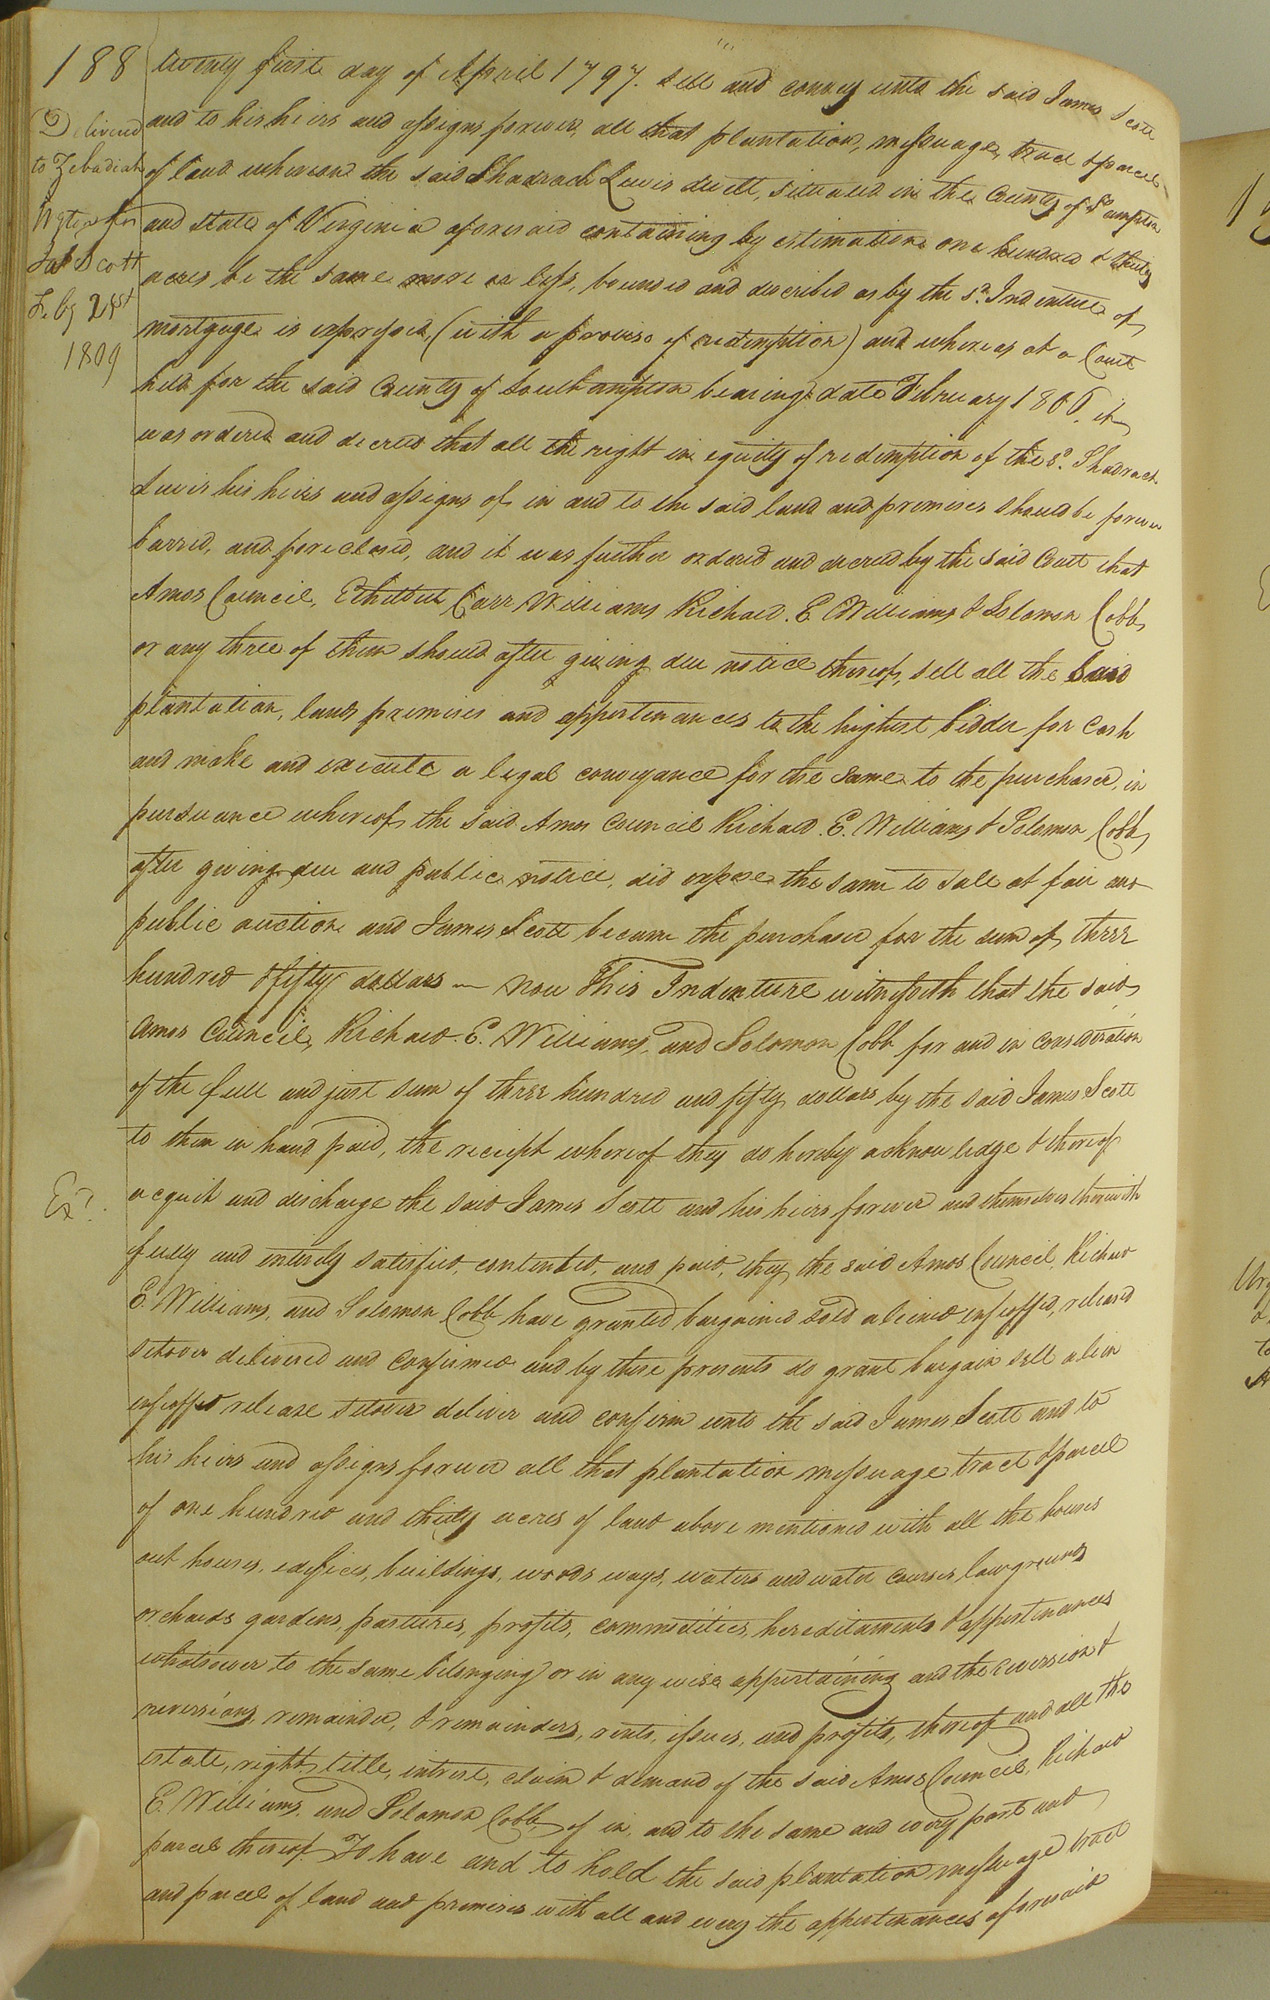 188
Delivered
to Zebadiah
for
Jas Scott
Feby 21st
1809
Exd.
twenty first day of April 1797. Sell and convey unto the said James Scott
and to his heirs and assigns forever, all that plantation, messuage, tract & parcel
of land whereon the said Shadrach Lewis dwelt, situated in the County of So.ampton
and State of Virginia aforesaid containing by estimation one hundred & thirty
acres be the same more or less, bounded and described as by the sd. Indenture of
mortgage is expressed, (with a proviso of redemption) and whereas at a Court
held for the said County of Southampton bearing date February 1806, it
was ordered and decreed that all the right in equity of redemption of the sd. Shadrach
Lewis his heirs and assigns of in and to the said land and premises should be forever
barred, and foreclosed, and it was further ordered and decreed by the said Court that
Amos Council, Etheldred Carr Williams Richard. E. Williams & Solomon Cobb
or any three of them should after giving due notice thereof, sell all the said
plantation, land, premises and appertenances to the highest bidder for cash
and make and execute a legal conveyance for the same to the purchaser, in
pursuance whereof the said Amos Council Richard. E. Williams & Solomon Cobb
after giving due and public notice, did expose the same to sale at fair and
public auction and James Scott became the purchaser for the sum of three
hundred & fifty dollars — Now This Indenture witnesseth that the said
Amos Council, Richard. E. Williams, and Solomon Cobb for and in consideration
of the full and just sum of three hundred and fifty dollars by the said James Scott
to them in hand paid, the receipt whereof they do hereby acknowledge & thereof
acquit and discharge the said James Scott and his heirs forever and themselves therewith
fully and entirely satisfied, contented, and paid, they the said Amos Council, Richard
E. Williams, and Solomon Cobb have granted bargained sold aliened enfeoffed, released
setover delivered and confirmed and by these presents do grant bargain sell alien
enfeoffed release setover deliver and confirm unto the said James Scott and to
his heirs and assigns forever all that plantation messuage tract & parcel
of one hundred and thirty acres of land above mentioned with all the houses
out houses, edifices, buildings, woods ways, waters and water courses, low grounds
orchards gardens, pastures, profits, commodities, hereditaments & appertenances
whatsoever to the same belonging or in any wise appertaining and the reversion &
reversions, remainder, & remainders, rents, issues, and profits, thereof and all the
estate, right, title, intrest, claim & demand of the said Amos Council, Richard
E. Williams. and Solomon Cobb of in, and to the same and every part and
parcel thereof. To have and to hold the said plantation messuage tract
and parcel of land and premises with all and every the appertenances aforesaid